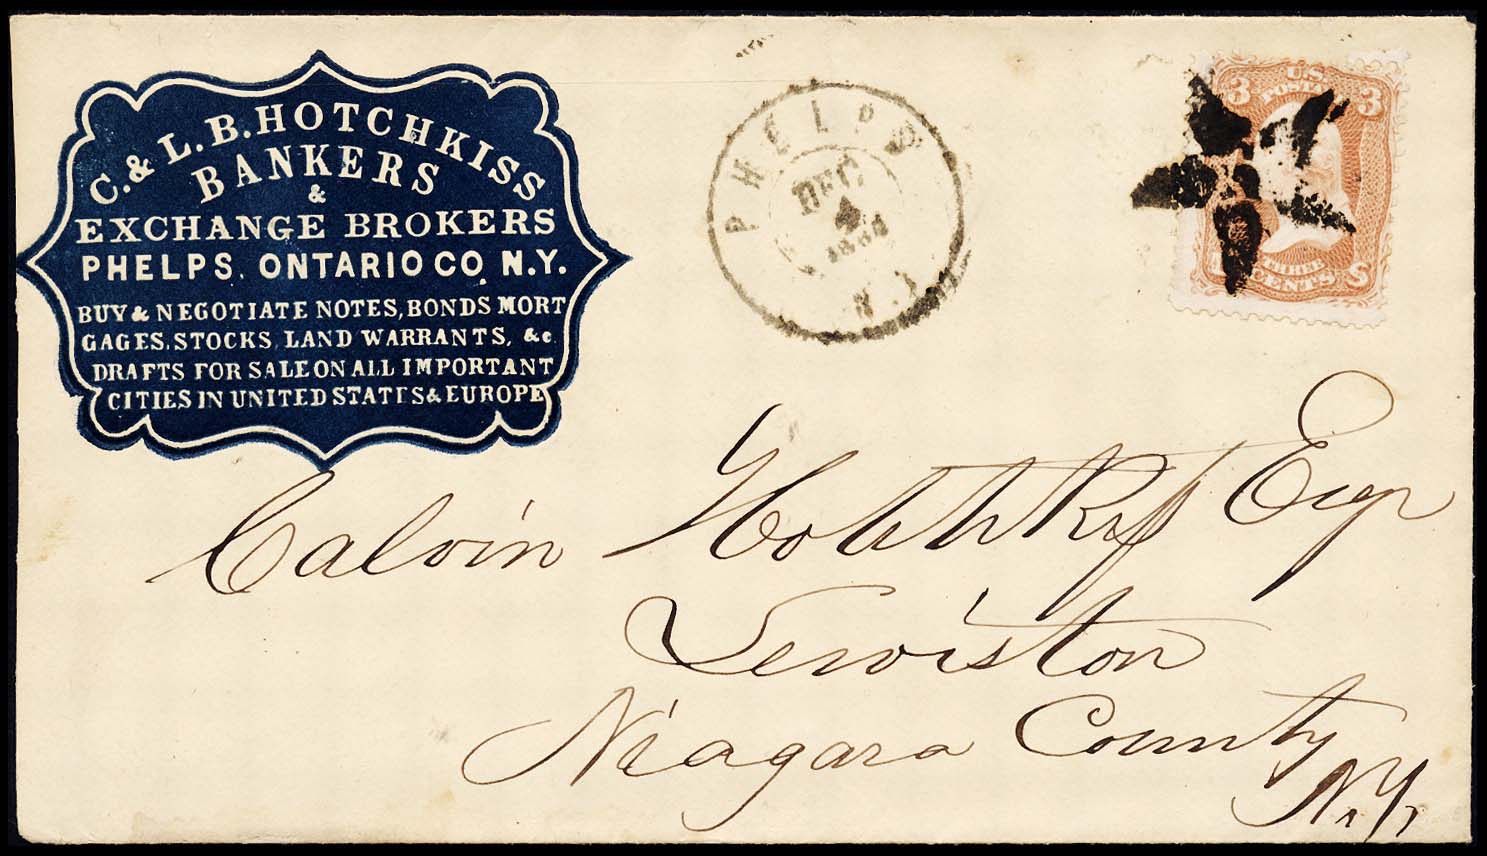 C. & L. B. HOTCHKISS
BANKERS
&
EXCHANGE BROKERS
PHELPS, ONTARIO CO. N.Y.
BUY & NEGOTIATE NOTES, BONDS MORT
GAGES, STOCKS, LAND WARRANTS, &c.
DRAFTS FOR SALE ON ALL IMPORTANT
CITIES IN UNITED STATES & EUROPE
PHELPS
DEC
4
N.Y.
3 U.S. 3
POSTAGE
THREE
CENTS
Calvin Hotchkiss Esqr
Lewiston
Niagara County
N.Y.